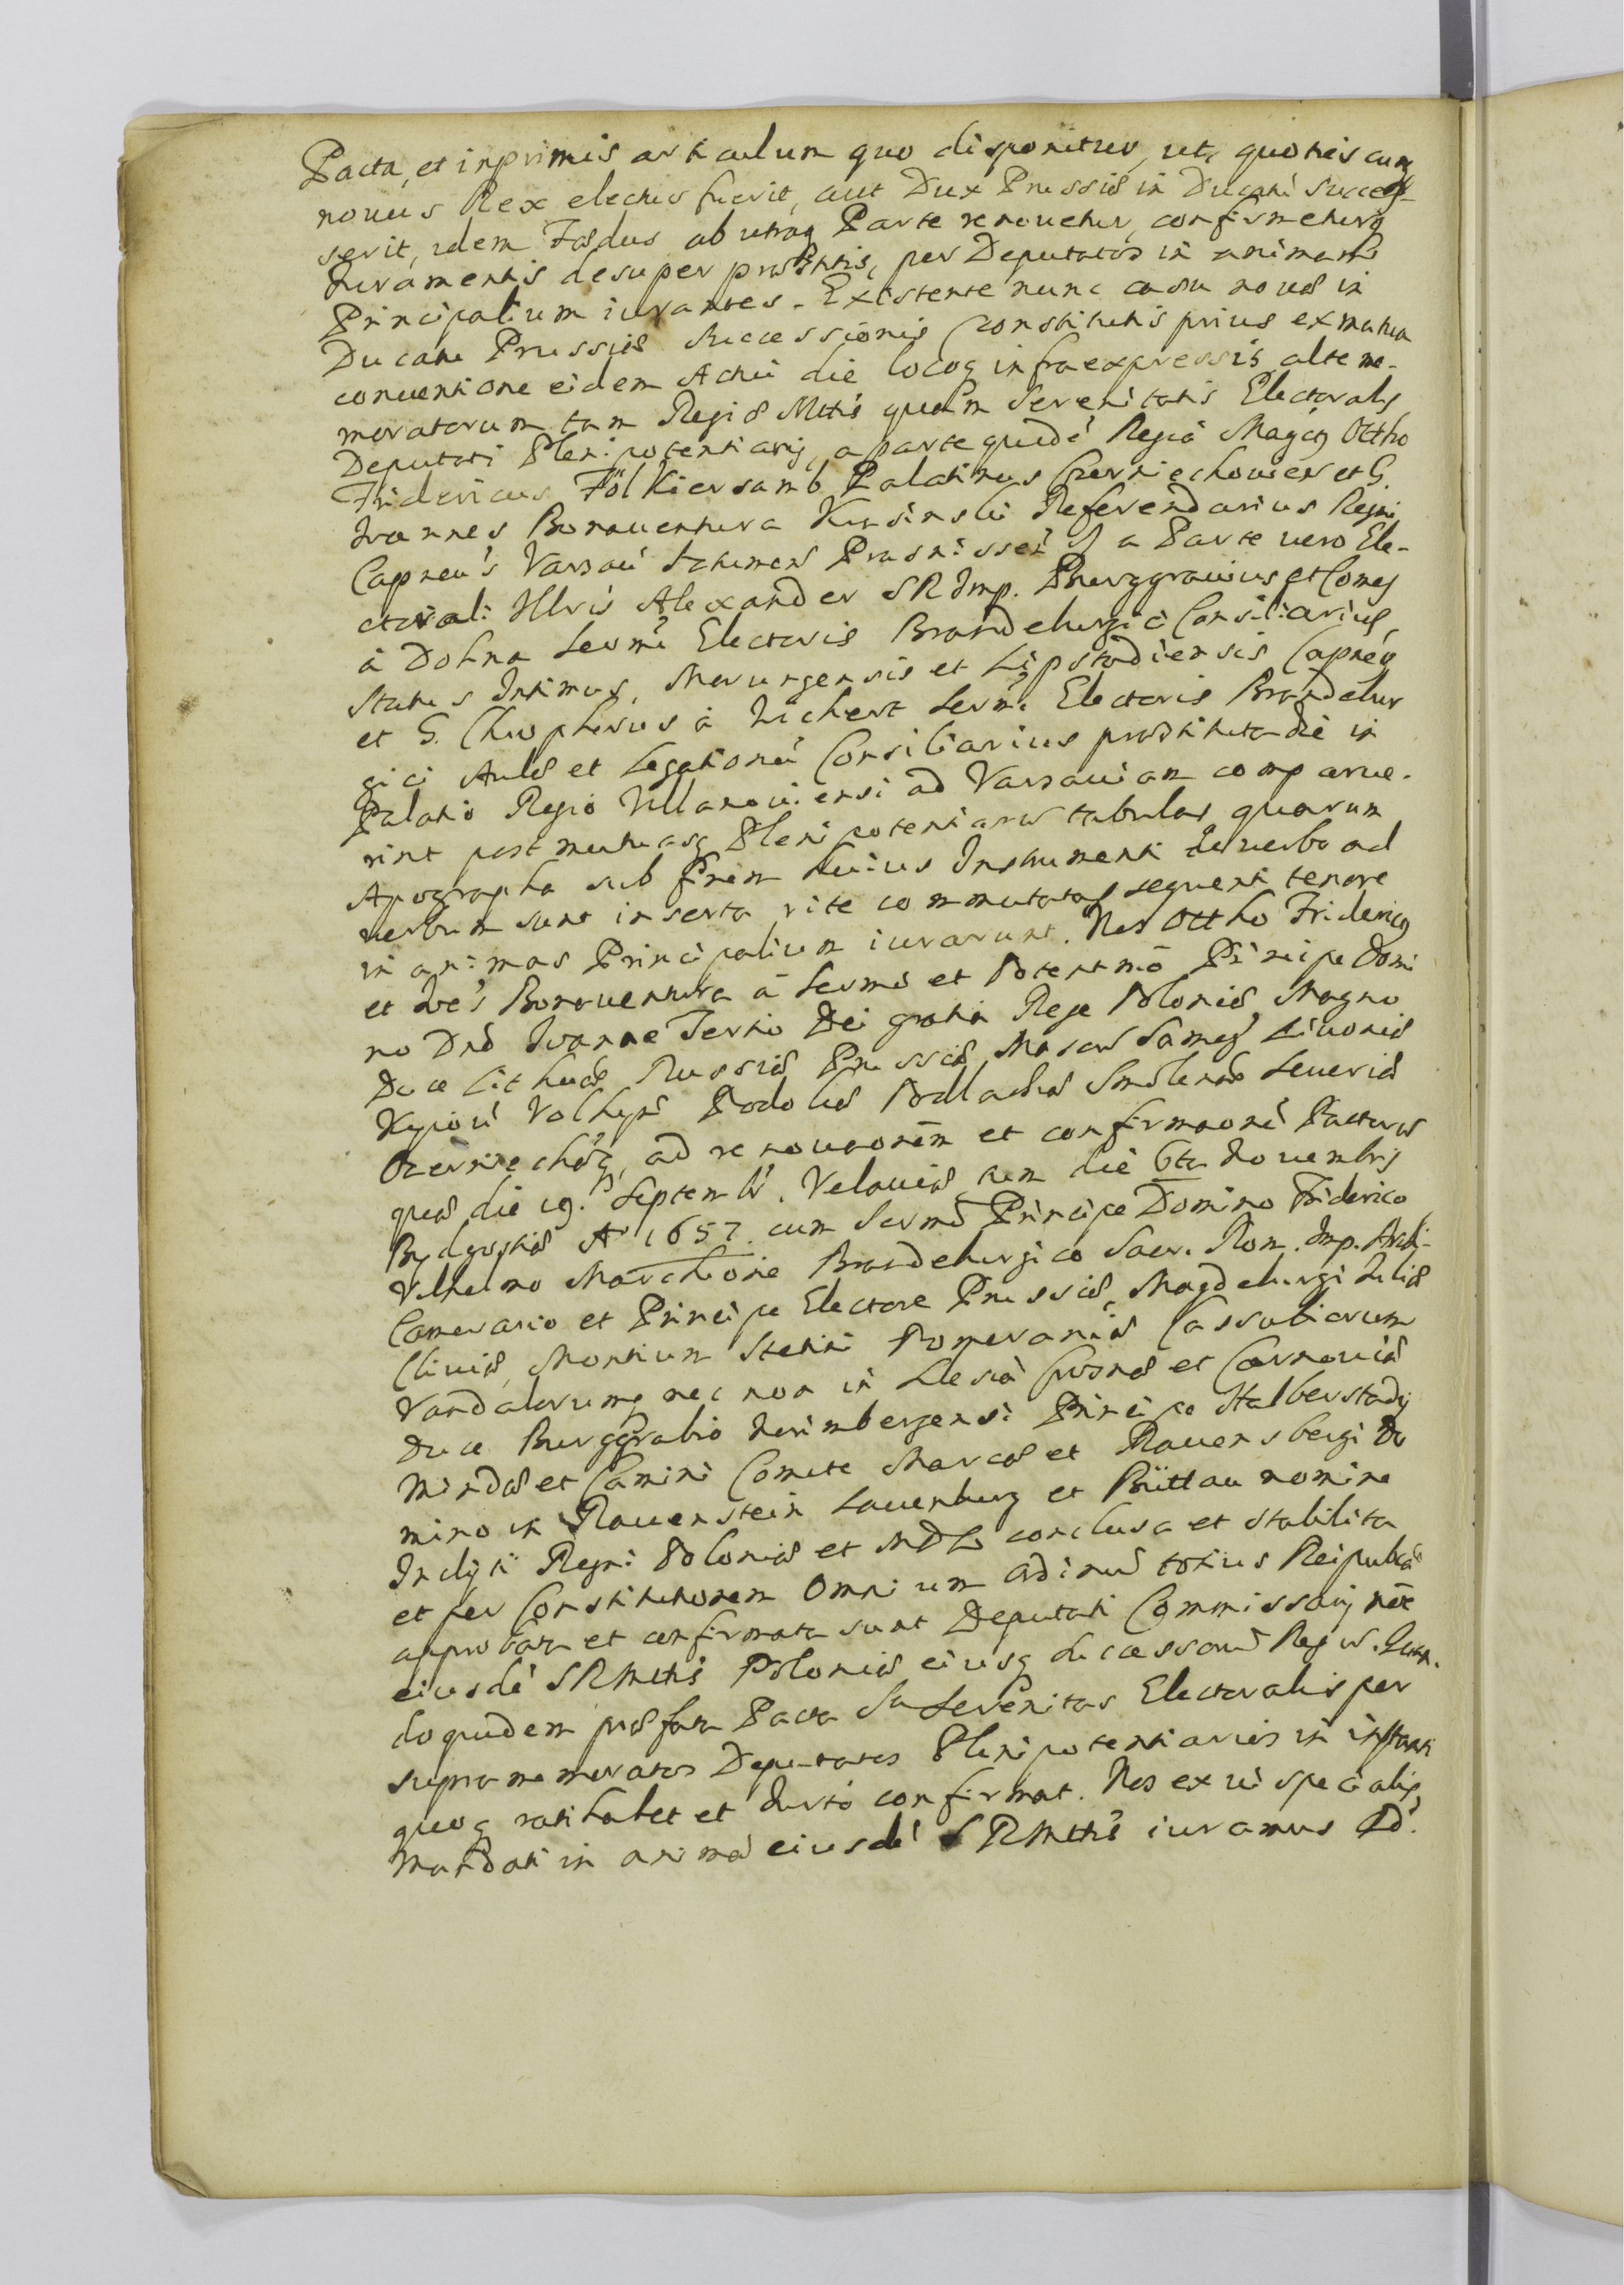 Pacta, et inprimis articulum quo disponitur, ut, quotiescunq
novus Rex electus fuerit, aut Dux Prussiæ in Ducatu succes-
serit, idem Fædus ab utraq Parte renouetur, confirmeturq
Iuramentis desuper præstitis, per Deputatos in animam
Principalium iurantes. Existente nunc casu nouæ in
Ducatu Prussiæ successionis Constitutis prius ex mutua
conuentione eidem Actui die locoq infraexpressis alte me-
moratorum tam Regiæ Mttis quam Serenitatis Electoralis
Deputati Plenipotentiarij, a parte quidé Regia Magcus Ottho
Fridericus Fölkiersamb Palatinus Czerniechouien et G.
Ioannes Bonauentura Krasinski Referendarius Regni
Capneus Varsauien Prasnissen a Parte uero Ele-
ctorali Illris Alexander SR Imp. Burggrauius et Comes
à Dohna Sermi Electoris Brandeburgici Consiliarius
Status Intimus, Morungensis et Lipstadiensis Capneus
et G. Chrophorus à Wichert Sermi Electoris Brandebur
gici Aulæ et Legationu Consiliarius præstituta die in
Palatio Regio Villanoviensi ad Varsauiam comparue-
rint post mutuasq Plenipotentiaru tabulas quarum
Apographa sub finem huius Instrumenti de uerbo ad
uerbum sunt inserta rite commutatas sequenti tenore
in animas Principalium iurarunt. Nos Ottho Fridericus
et Ioés Bonauentura à Sermo et Potentmo Principe Domi
no Dno Ioanne Tertio Dei gratia Rege Poloniæ, Magno
Duce Lithuæ Russiæ Prussiæ Masou Samog Liuoniæ
Kyiou Volhyn Podoliæ Podlachiæ Smolensc Seueriæ
Czerniechoq, ad renouaonem et confirmaone Pactoru
quæ die 19. Septembr. Velauiæ tum die 6ta Nouembris
Bydgostiæ Ao 1657. cum Sermo Principe Domino Friderico
Vilhelmo Marchione Brandeburgico Sacr. Rom. Imp. Archi-
Camerario et Principe Electore Prussiæ, Magdeburgi Iuliæ
Cliuiæ, Montium Stetini Pomeraniæ Cassubiorum
Vandalorumq nec non in Silesia Crosnæ et Carnouiæ
Duce Burggrabio Norimbergensi Principe Halberstadij
Mindæ et Camini Comite Marcæ et Rauensbergi Do
mino in Rauenstein Lauenburg et Büttau nomine
Inclyti Regni Poloniæ et MDL conclusa et stabilita
et per Constitutionem Omnium Ordinu totius Reipublicæ
approbata et confirmata sunt Deputati Commissarij noe
eiusdé SRMttis Poloniæ eiusq Successoru Regu.
doquidem præfata Pacta Sua Serenitas Electoralis per
supramemoratos Deputatos Plenipotentiarios in instanti
quoq ratihabet et Iurto confirmat. Nos ex ui specialis
Mandati in anima eiusdé SRMttis iuramus